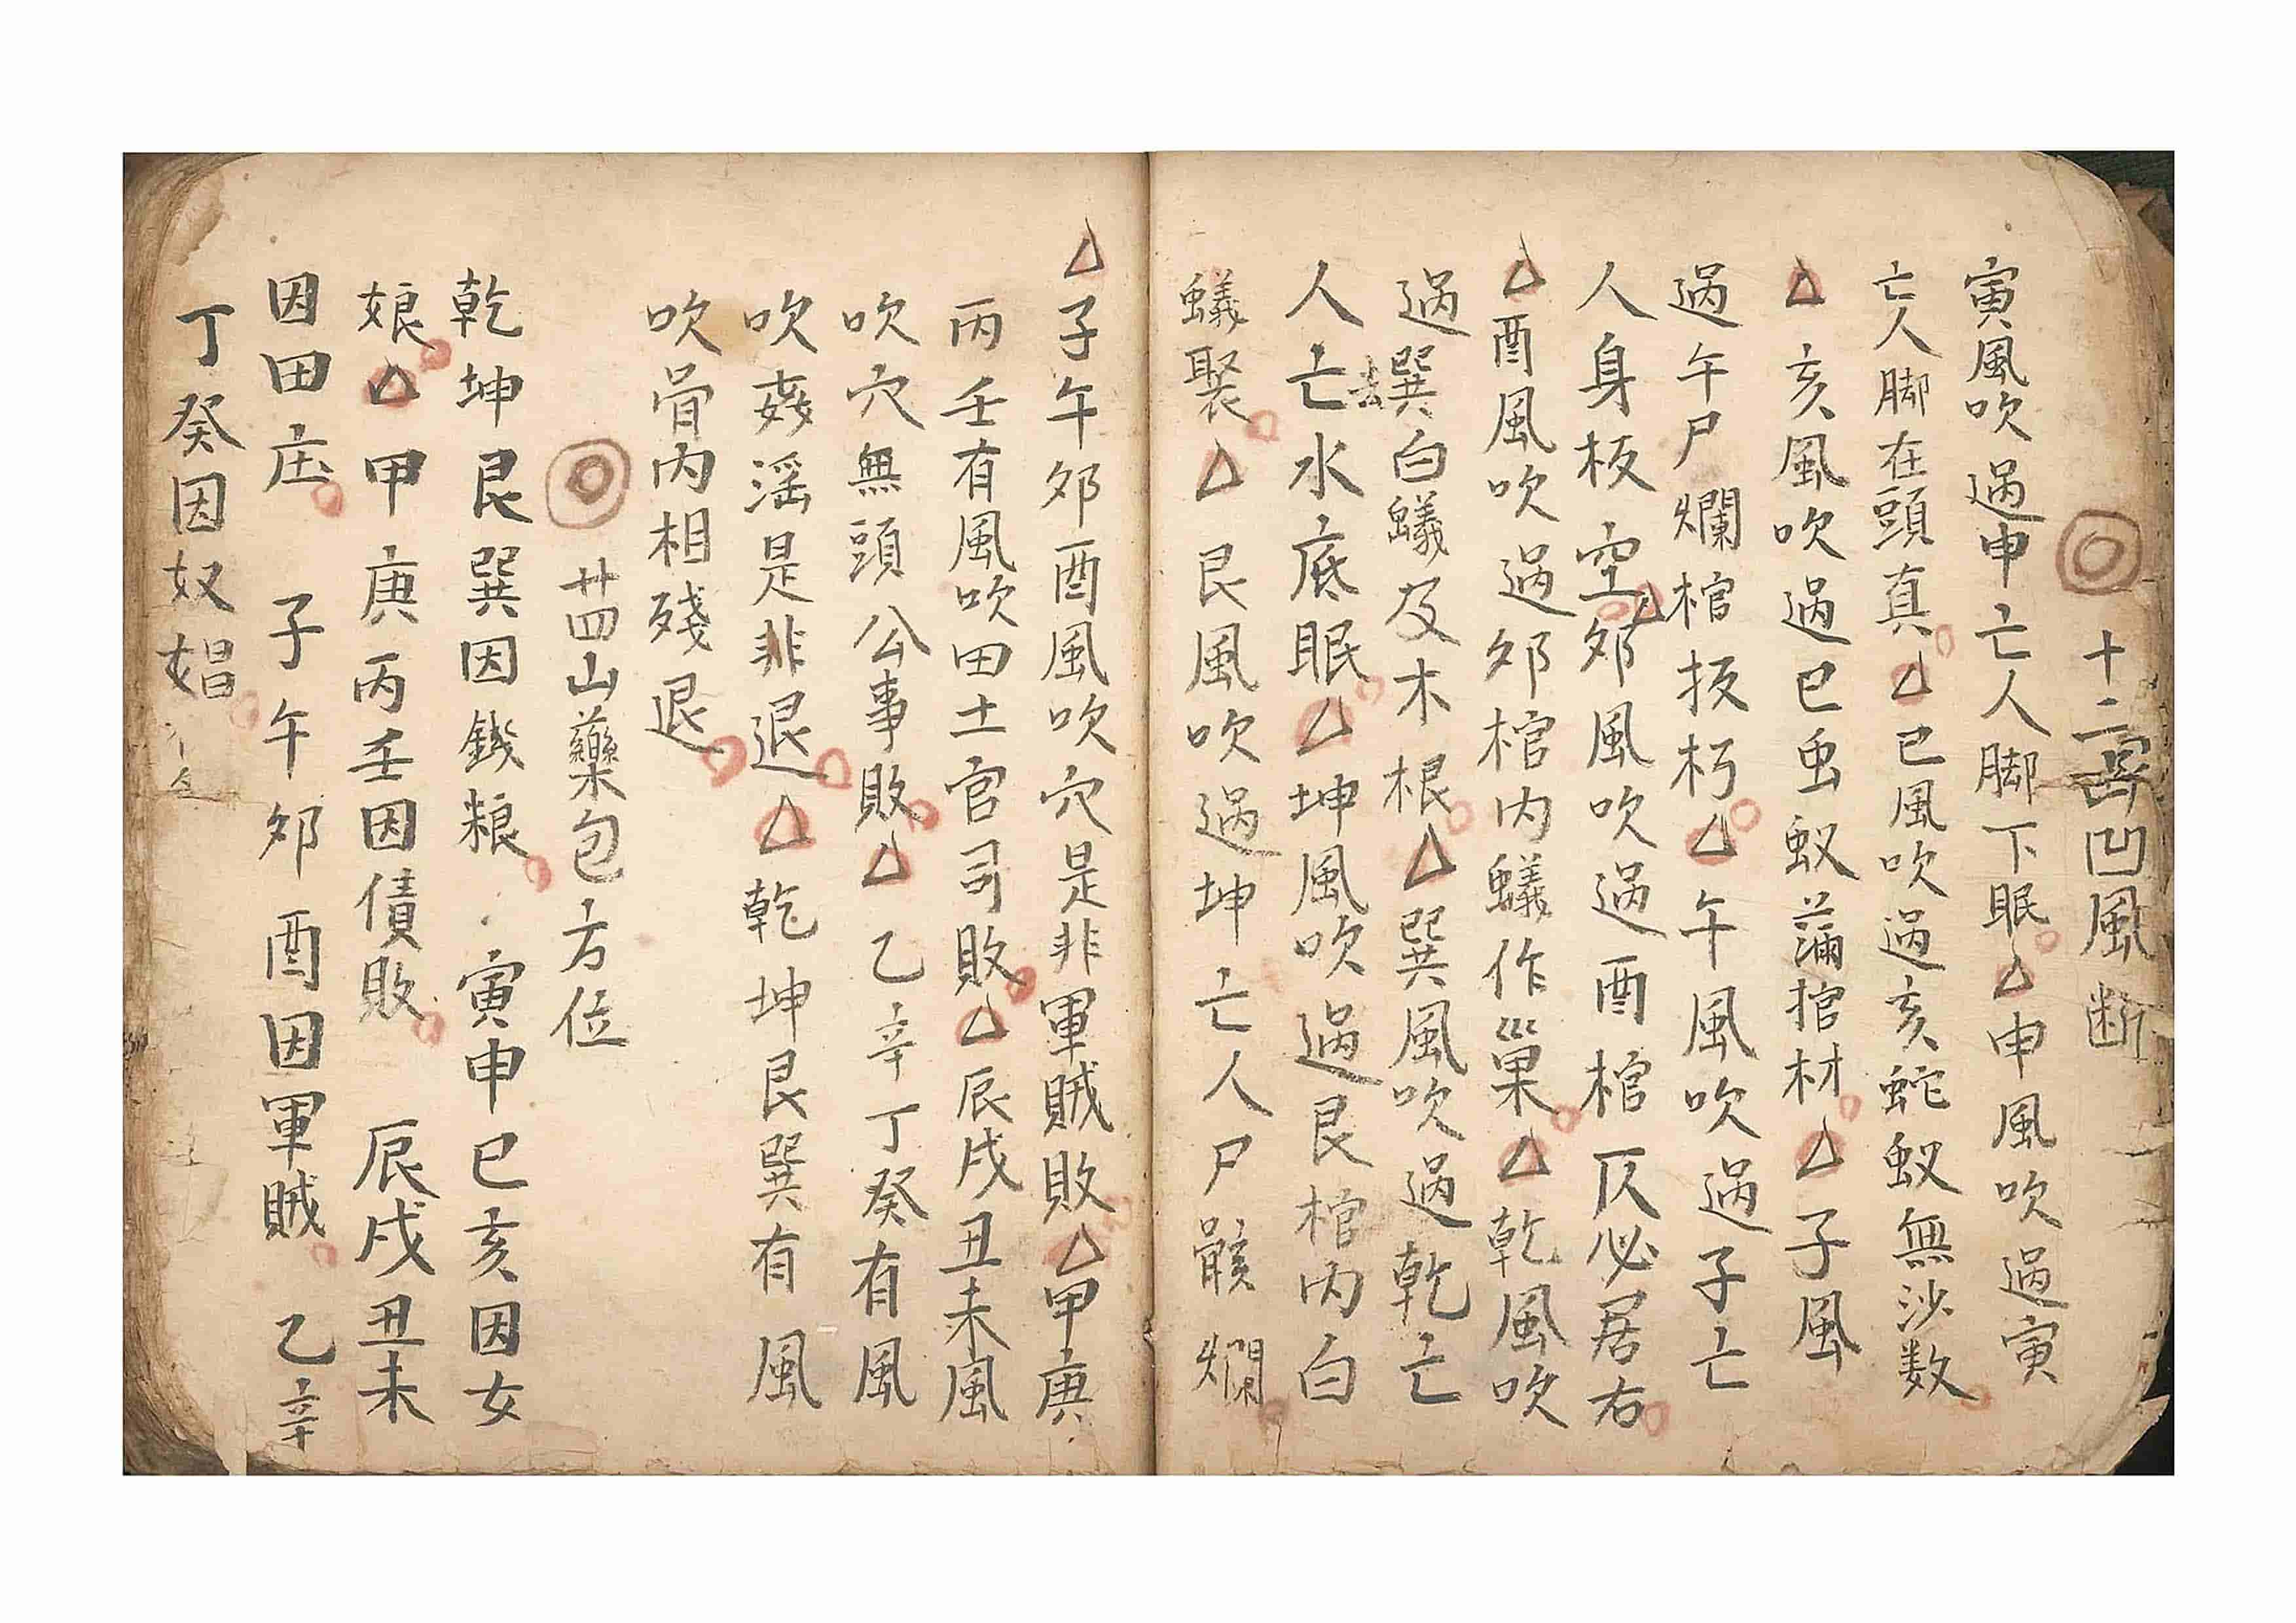 十二凹風断
寅風吹過申亡人脚下眠申風吹過寅
亡人脚在頭真巳風吹過亥蛇蚁無沙数
亥風吹過巳虫蚁蒲棺材子風
過午尸爛棺板朽午風吹過子亡
人身板空夘風吹過酉棺仄必居右
酉風吹過夘棺内蟻作巢乾風吹
過巽白蟻及木根巽風吹過乾亡
人亡水底眠坤風吹過艮棺内白
蟻聚艮風吹過坤亡人尸骸爛
子午夘酉風吹穴是非軍賊敗甲庚
丙壬有風吹田土官司敗辰戌丑未風
吹穴無頭公事敗乙辛丁癸有風
吹姦滛是非退乾坤艮巽有風
吹骨内相殘退
廿四山藥包方位
乾坤艮巽因錢粮寅申巳亥因女
娘甲庚丙壬因債敗辰戌丑未
因田庄子午夘酉因軍賊乙辛
丁癸因奴娼